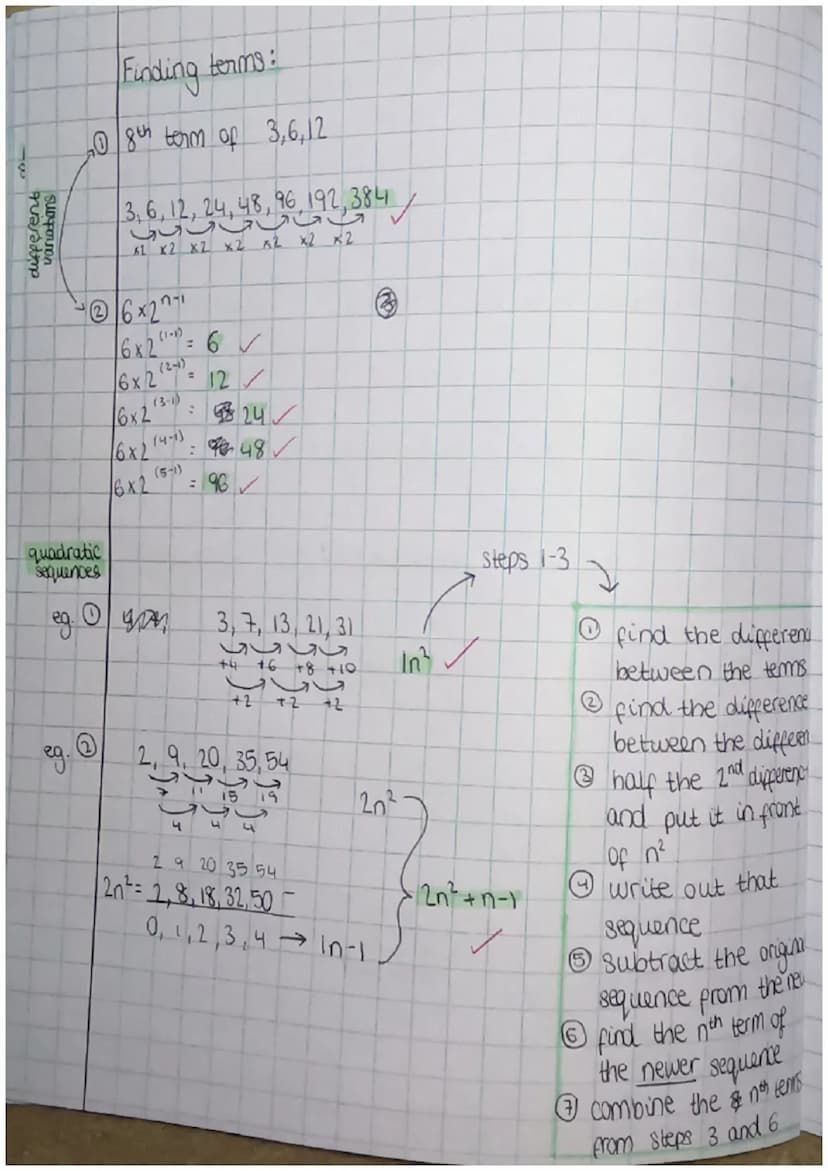 Finding terms:
① 8th term of 3,6,12
different
variations
3, 6, 12, 24, 48, 96, 192, 384
×2 ×2 ×2 ×2 ×2 ×2 ×2
② 6×2ⁿ⁻¹
6×2⁽¹⁻¹⁾ = 6
6×2⁽²⁻¹⁾ = 12
6×2⁽³⁻¹⁾ = 24
6×2⁽⁴⁻¹⁾ = 48
6×2⁽⁵⁻¹⁾ = 96
quadratic
sequences
steps 1-3
eg. ① 3, 7, 13, 21, 31
+4 +6 +8 +10
+2 +2 +2
1n²
eg. ② 2, 9, 20, 35, 54
7 11 15 19
4 4 4
2n²
2 9 20 35 54
2n² = 2, 8, 18, 32, 50 –
0, 1, 2, 3, 4 → 1n-1
2n² + n-1
① find the differenc
between the terms
② find the difference
between the differen
③ half the 2nd differenc
and put it in front
of n²
④ write out that
sequence
⑤ subtract the original
sequence from the ne
⑥ find the nth term of
the newer sequence
⑦ combine the nth terms
from steps 3 and 6